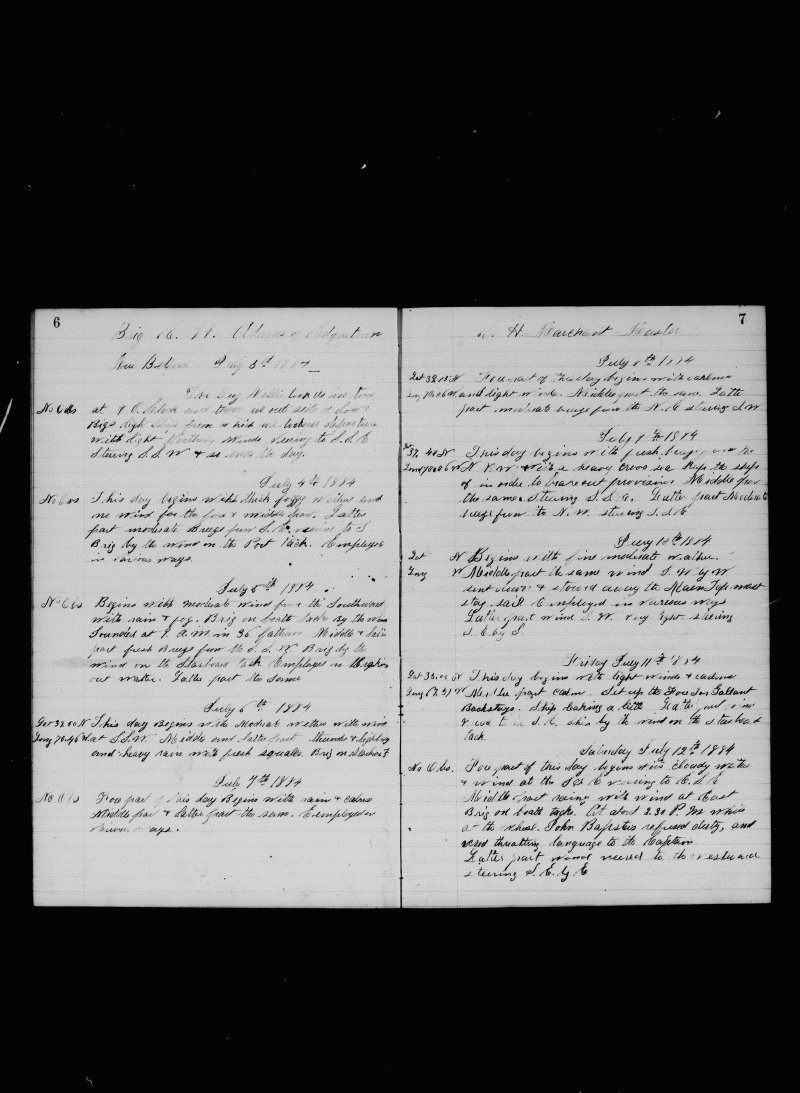 6
Brig
July 3d 1884
tow
No Obs at 8 O.Clock and took us out side of
Light Ship from which we took our departure
with light Northerly Winds veering to S.S.E
Steering S.S.W & so ends the day.
July 4th 1884
No Obs This day begins with thick foggy weather and
no wind for the fore & middle part. Latter
part moderate Breeze from S.E. veering to S
Brig by the wind on the Port tack. Employed
in various ways.
July 5th 1884
No Obs Begins with moderate wind from the Southward
with rain & fog. Brig on both tacks By the wind
Sounded at 8 A.M in 36 fathoms Middle & latter
part fresh Breeze from the S.S.W Brig by the
wind on the Starboard tack Employed in
out water. Latter part the same
July 6th 1884
N This day Begins with Moderate wether with wind
Long 70.46 W at S.S.W. Middle and latter part thunder & lightning
and heavy rain with fresh squalls. Brig on
July 7th 1884
No Obs Fore part of this day Begins with rain & calms
Middle part & Latter part the same. Employed in
various ways.
7
H. Marchant Master
July 8th 1884
N Fore part of Tuesday begins with calms
and light winds. Middle part the same. Latter
part moderate breeze from the N.E steering S.W
July 9th 1884
This day begins with fresh breeze
N.N.W with a heavy cross sea Kept the ship
off in order to brake out provisions Middle part
the same. Steering S.S.E. Latter part Moderate
breeze from the N.W. steering S.S.E
July 10th 1884
Lat N Begins with fine moderate wather.
Long W Middle part the same wind S.W by W
sent down & stowed away the Main Top mast
stay sail Employed in various ways
Latter part wind S.W. very light. steering
S.E. by S.
Friday July 11th 1884
N This day begins with light winds & calms
W Middle part calm. Set up the Fore Top Gallant
Backstays. Ship leaking a little Latter part wind
S.E. ship by the wind on the starboard
tack.
Saturday July 12th 1884
No Obs. Fore part of this day begins with cloudy wether
& wind at the S.S.E veering to E.S.E
Middle part rainy with wind at East
Brig on both tacks. At about 3.30 P.M while
at the wheel. John Baptiste refused duty, and
used threatling language to the Captain
Latter part wind veered to the westward
steering S.E. by E